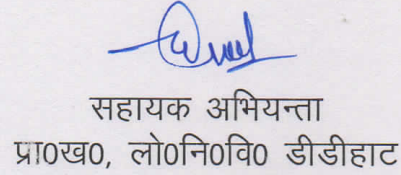 सहायक अभियन्ता
प्रा0ख0, लो0नि0वि0 डीडीहाट